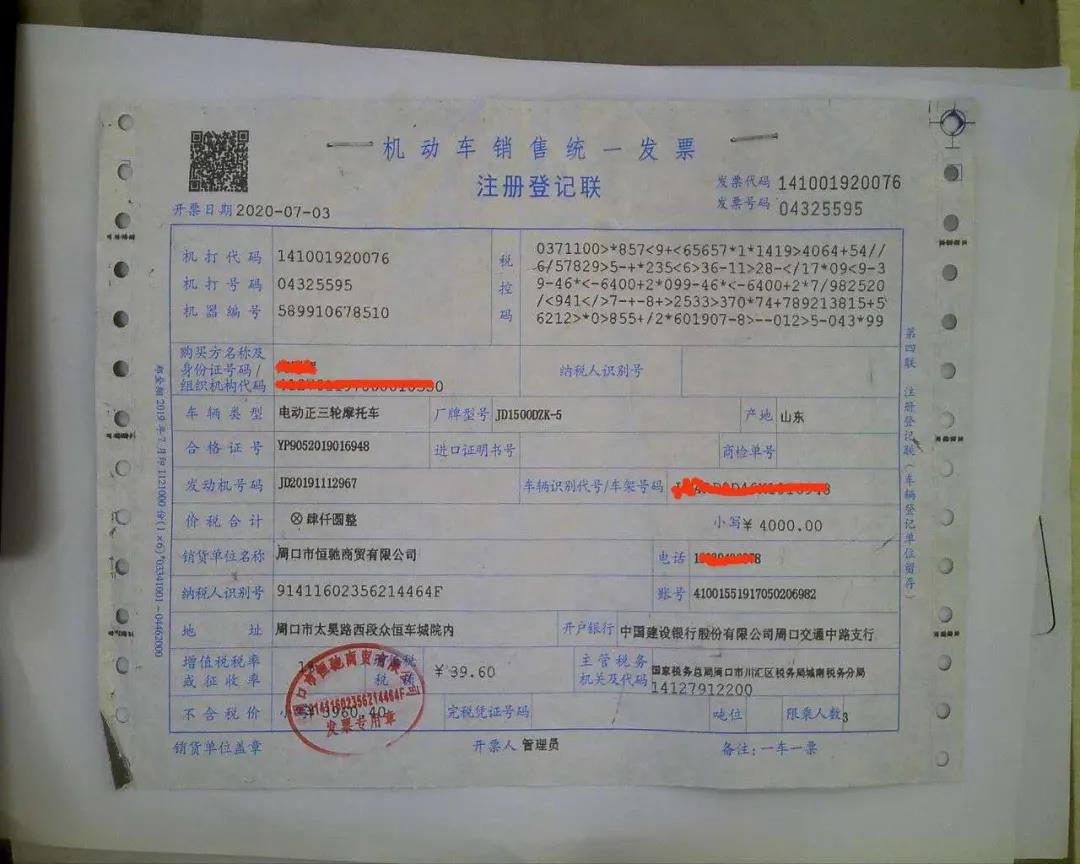 机动车销售统一发票
注册登记联
发票代码 141001920076
发票号码 04325595
开票日期 2020-07-03
机打代码 141001920076
机打号码 04325595
机器编号 589910678510
税控码
0371100>*857<9+<65657*1*1419>4064+54//
6/57829>5-+*235<6>36-11>28-</17*09<9-3
9-46*<-6400+2*099-46*<-6400+2*7/982520
/<941</>7-+-8+>2533>370*74+789213815+5
6212>*0>855+/2*601907-8>--012>5-043*99
购买方名称及
身份证号码/
组织机构代码
纳税人识别号
车辆类型 电动正三轮摩托车 厂牌型号 JD1500DZK-5 产地 山东
合格证号 YP9052019016948 进口证明书号 商检单号
发动机号码 JD20191112967 车辆识别代号/车架号码
价税合计 ⊗肆仟圆整 小写 ¥ 4000.00
销货单位名称 周口市恒驰商贸有限公司 电话
纳税人识别号 91411602356214464F 账号 41001551917050206982
地址 周口市太昊路西段众恒车城院内 开户银行 中国建设银行股份有限公司周口交通中路支行
增值税税率
或征收率
¥39.60
主管税务
机关及代码
国家税务总局周口市川汇区税务局城南税务分局
14127912200
不含税价 3960.40 完税凭证号码 吨位 限乘人数 3
销货单位盖章 开票人 管理员 备注:一车一票
周口市恒驰商贸有限公司
91411602356214464F
发票专用章
第四联 注册登记联(车辆登记单位留存)